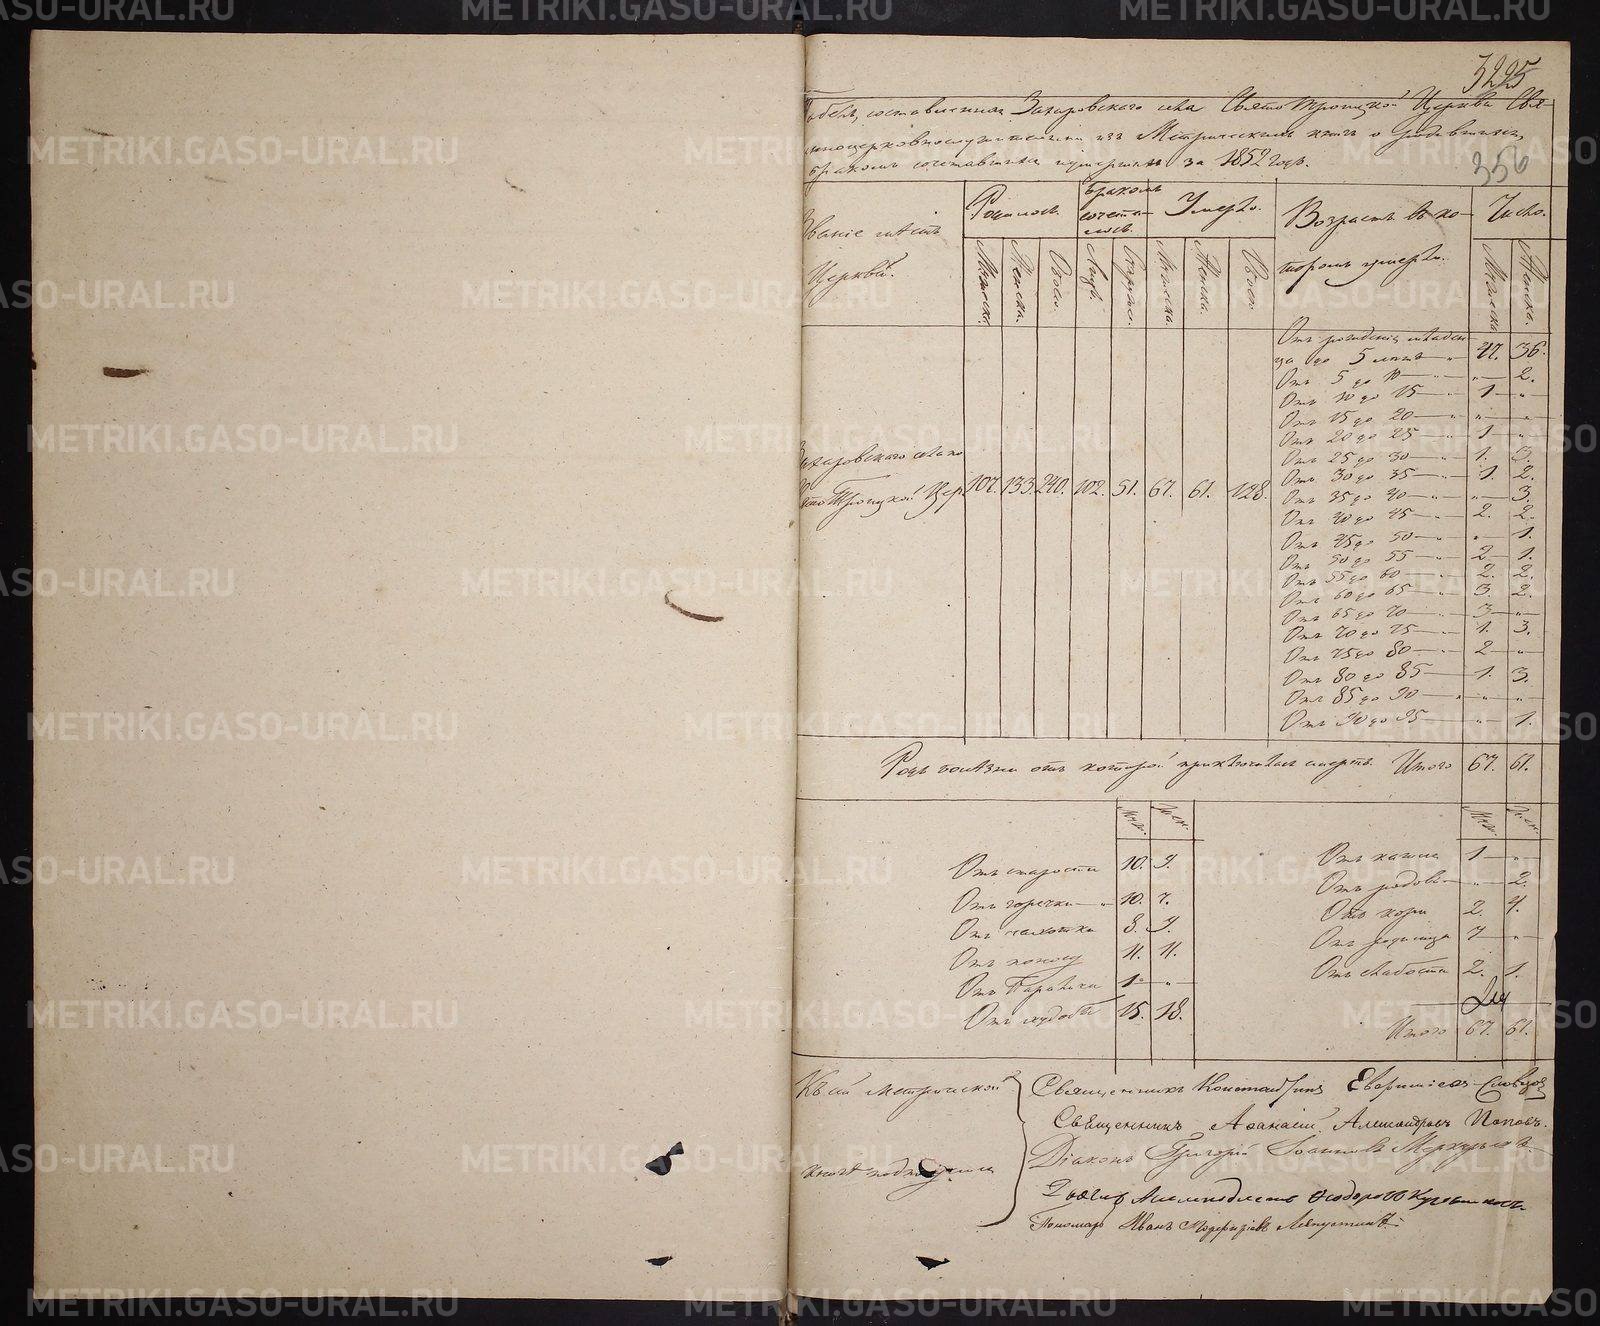 325
Табель, составленная Захаровского села Свято Троицкой Церкви Свя-
щенноцерковнослужителями изъ Метрическихъ книгъ о родившихся,
бракомъ сочетавшихся и умершихъ за 1852 годъ.
356
Званіе мѣстъ Церкви.
Родилось. Бракомъ сочета-лось. Умерло. Возрастъ въ ко-тормъ умерли. Число.
Мужска. Женска. Обоего. Лицъ. Супруж. Мужска. Женска. Обоего. Мужска. Женска.
Захаровскаго села
Свято Троицкой Цер. 107. 133. 240. 102. 51. 67. 61. 128.
Отъ рожденія младен-
ца до 5 лѣтъ — „ 47. 36.
Отъ 5 до 10 — „ „ 2.
Отъ 10 до 15 — „ 1 — „
Отъ 15 до 20 — „ „ — „
Отъ 20 до 25 — „ 1 — „
Отъ 25 до 30 — „ 1. 3.
Отъ 30 до 35 — „ 1. 2.
Отъ 35 до 40 — „ „ — 3.
Отъ 40 до 45 — „ 2. 2.
Отъ 45 до 50 — „ „ 1.
Отъ 50 до 55 — „ 2 — 1.
Отъ 55 до 60 — „ 2. 2.
Отъ 60 до 65 — „ 3. 2.
Отъ 65 до 70 — „ 3 — „
Отъ 70 до 75 — „ 1. 3.
Отъ 75 до 80 — „ 2 — „
Отъ 80 до 85 — „ 1. 3.
Отъ 85 до 90 — „ „ — „
Отъ 90 до 95 — „ — 1.
Родъ болѣзни отъ которой приключилась смерть. Итого 67. 61.
Муж. Жен. Муж. Жен.
Отъ старости 10. 9.
Отъ горячки — „ 10. 7.
Отъ чахотки 8. 9.
Отъ поносу 11. 11.
Отъ Паралича 1 — „
Отъ худобы 15. 18.
Отъ кашля 1 — „
Отъ родовъ — „ — 2.
Отъ кори 2. 4.
Отъ родимца 7 — „
Отъ слабости 2. 1.
Итого 67. 61.
Къ сей метрической
книгѣ подписуемся
Священникъ Константинъ Словцовъ
Священникъ Аѳанасій Александровъ Поповъ.
Діаконъ Григорій Іоанновъ Меркурьевъ
Пономарь Иванъ
METRIKI.GASO-URAL.RU